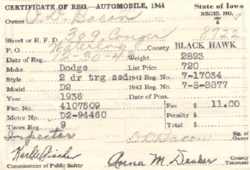 CERTIFICATE OF REG. AUTOMOBILE, 1944 State of Iowa
Owner D. D. Bacon REGIS. NO.
Street or R. F. D. 309 Conger 8722
P. O. Waterloo BLACK HAWK
Date of Reg. Weight 2893
Make Dodge List Price 720
Style 2 dr trg sed 1943 Reg. No. 7-17034
Model D2 1942 Reg. No. 7-8-8877
Year 1936 Date of Pur.
Fac. No. 4107509 Fee $ 11.00
Motor No. D2-94460 Penalty $
Times Reg. 9 Total $
Inspector
Sig. of Owner
Karl W. Fischer Anna M. Decker
Commissioner of Public Safety